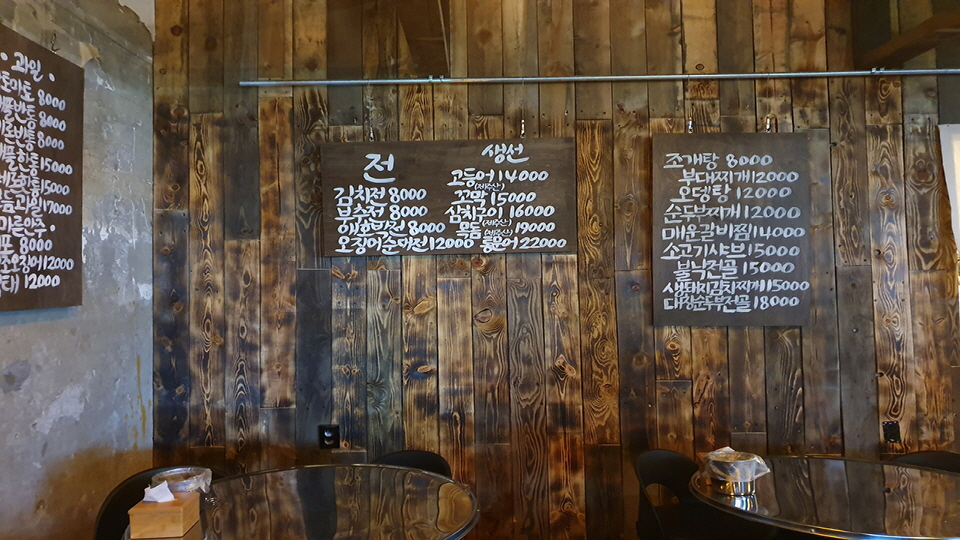 • 과일 •
토마토 8000
8000
8000
15000
15000
과일 17000
마른안주 •
8000
오징어 12000
12000
전
김치전 8000
부추전 8000
애호박전 8000
오징어순대전 12000
생선
고등어 14000
(제주산)
꼬막 15000
삼치구이 16000
(제주산)
19000
22000
조개탕 8000
부대찌개 12000
오뎅탕 12000
순두부찌개 12000
매운갈비찜 14000
소고기샤브 15000
불낙전골 15000
생돼지김치찌개 15000
순두부전골 18000